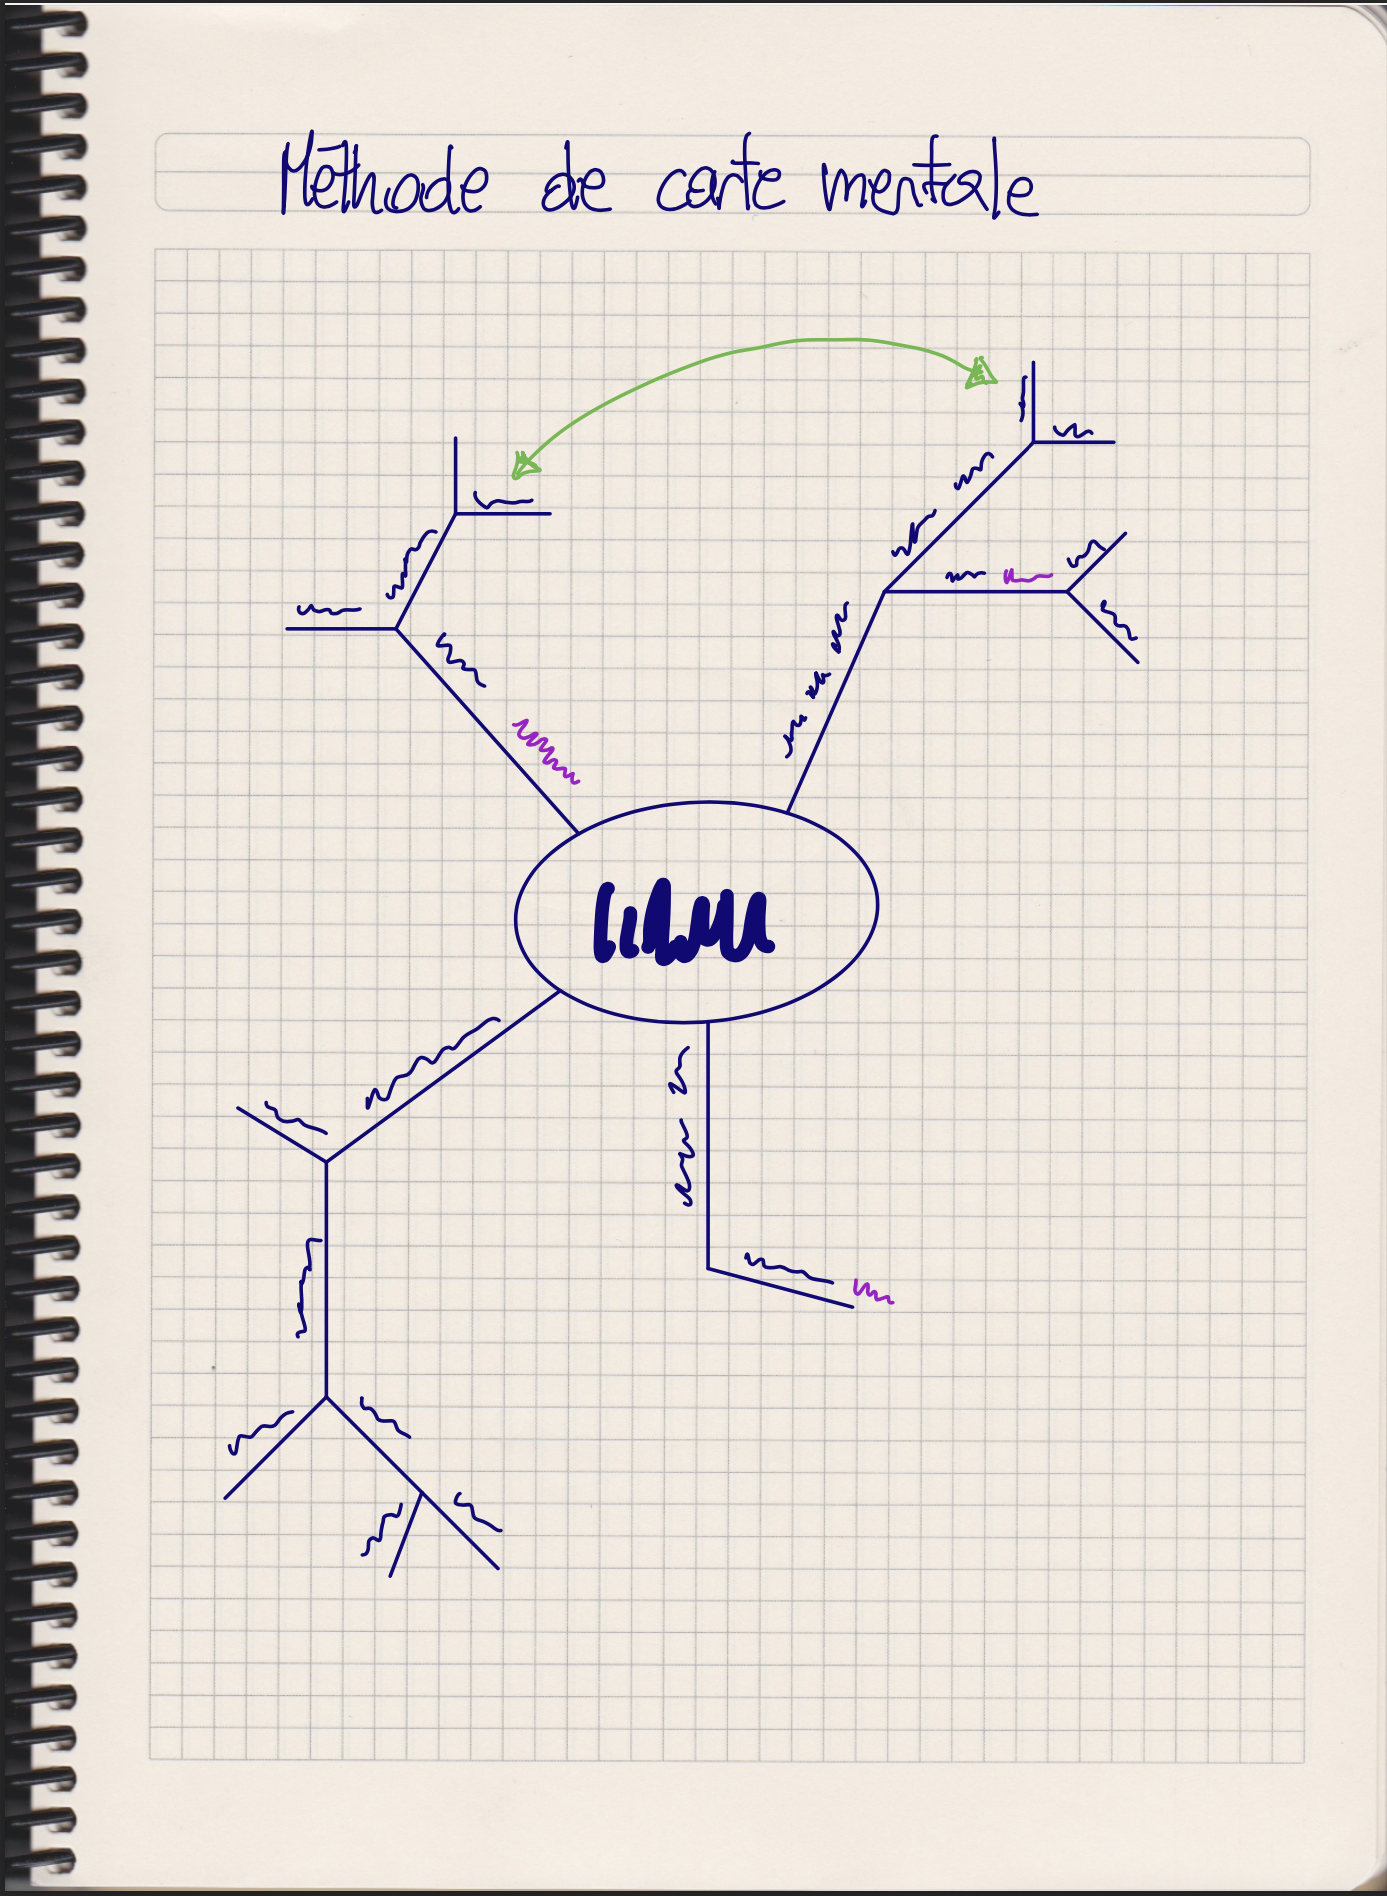 Méthode de carte mentale